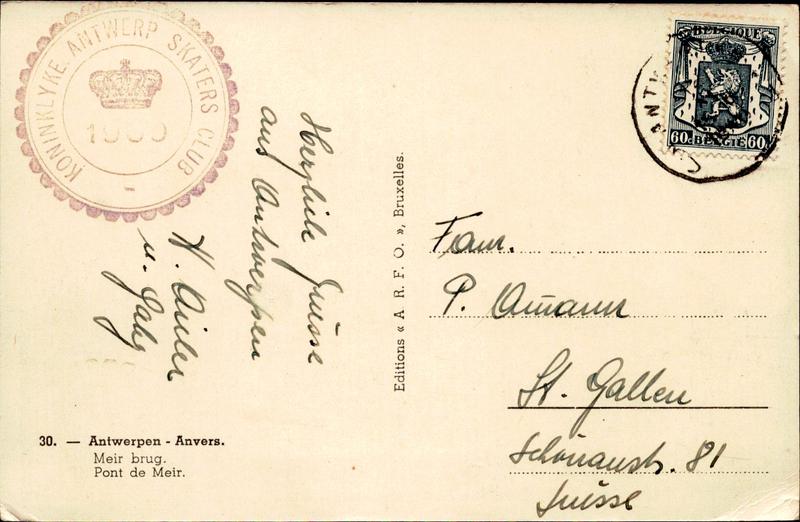 KONINKLYKE. ANTWERP SKATERS CLUB
1900
Herzliche Grüsse
aus Antwerpen
u.
Editions « A. R. F. O. », Bruxelles.
BELGIQUE
60c BELGIE 60c
ANTW
Fam.
P. Amann
St. Gallen
81
Suisse
30. — Antwerpen - Anvers.
Meir brug.
Pont de Meir.